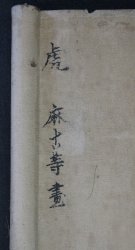 虎
麻古等畫